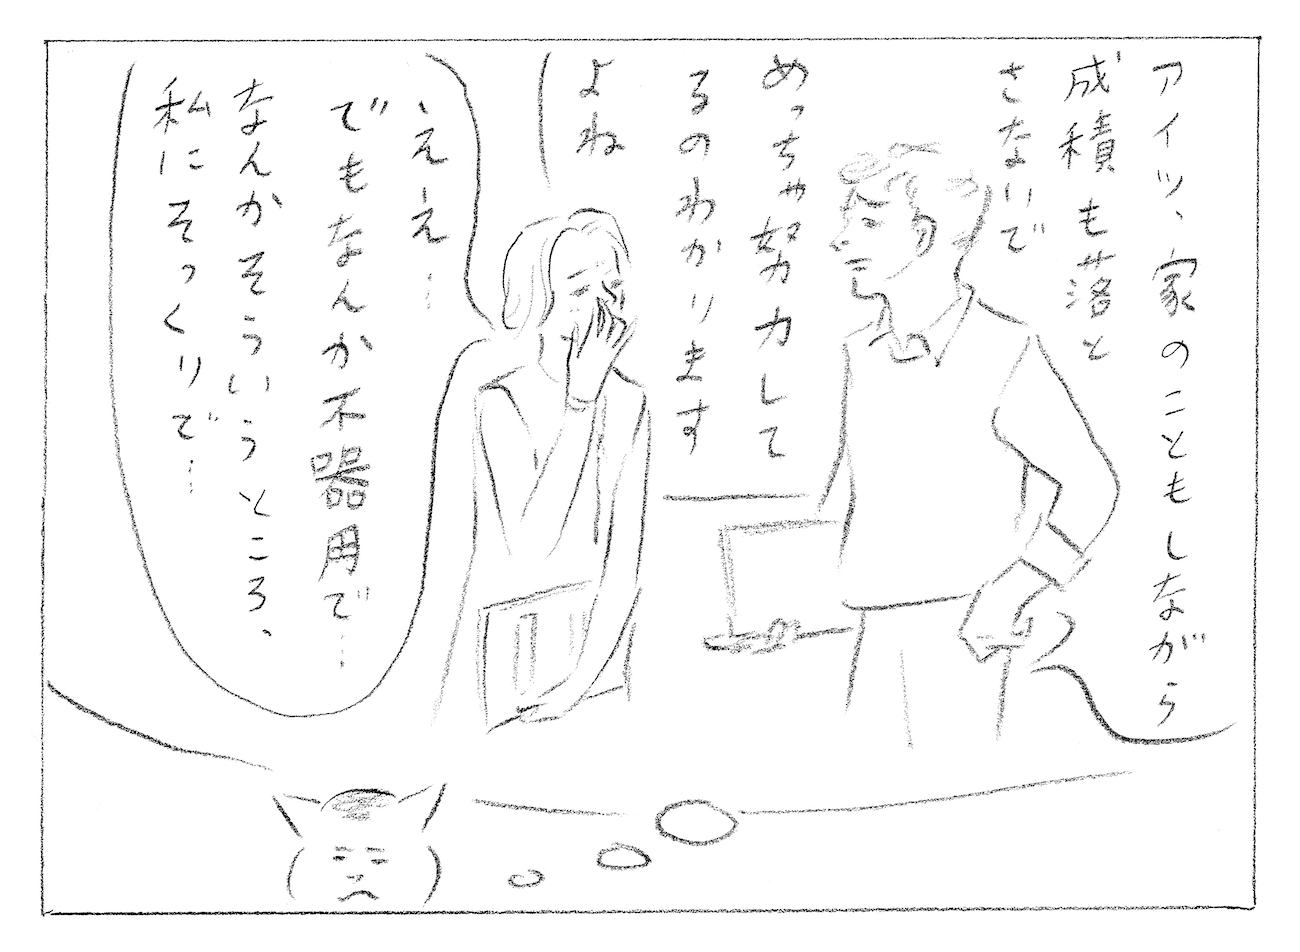 アイツ、家のこともしながら
成積も落と
さないで
めっちゃ努力して
るのわかります
よね
ええ…
でもなんか不器用で…
なんかそういうところ、
私にそっくりで…